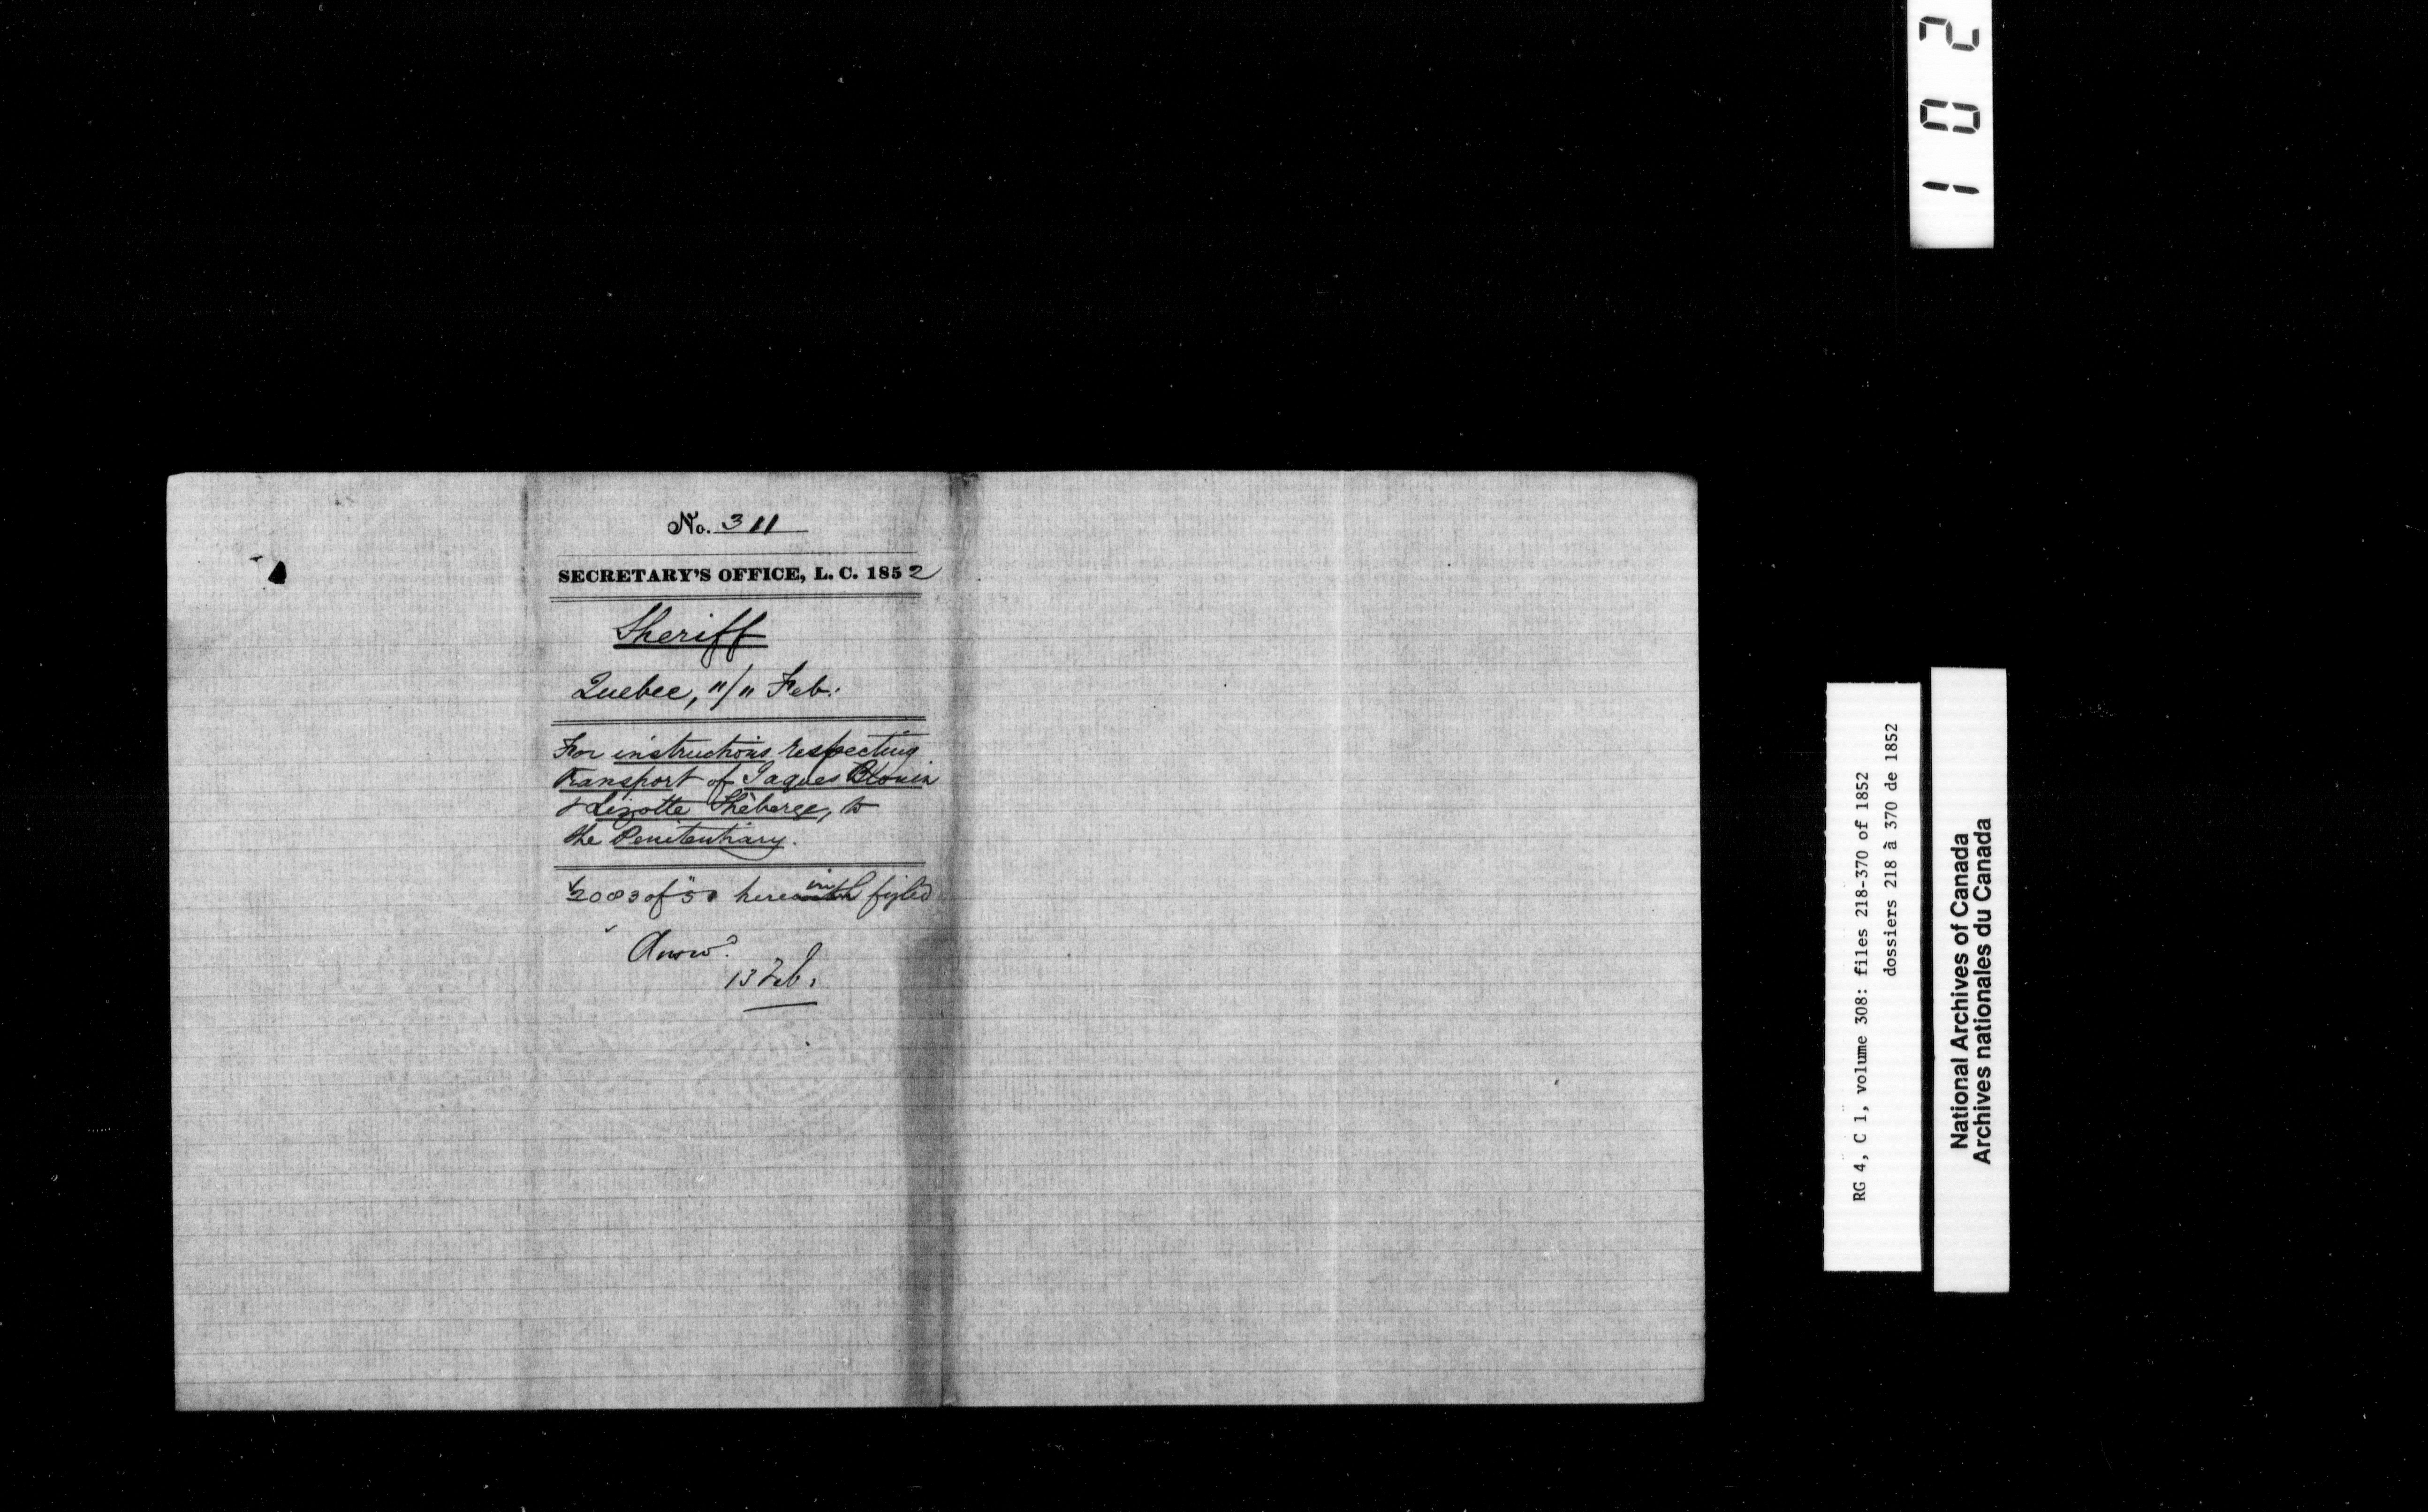 No. 311
SECRETARY'S OFFICE, L. C. 1852
Sheriff
Quebec, 11/11 Feb:
For instructions respecting
Transport of Jaques Blouin
& Lizotte Théberge, to
the Penitentiary.
2083 of 50 herewith fyled
in
Answd.
13 Feb:
1 0 2
RG 4, C 1, volume 308: files 218-370 of 1852
dossiers 218 à 370 de 1852
National Archives of Canada
Archives nationales du Canada